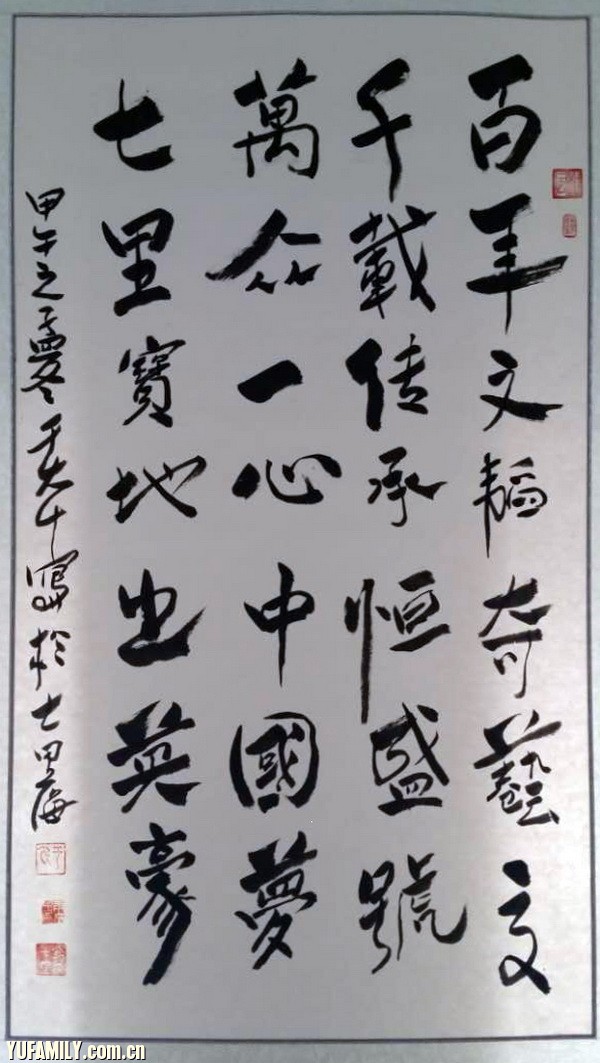 百年文韬奇藝文
千載传承恒盛號
萬众一心中國夢
七里寶地出英豪
甲午之冬寫於七里海
YUFAMILY.com.cn